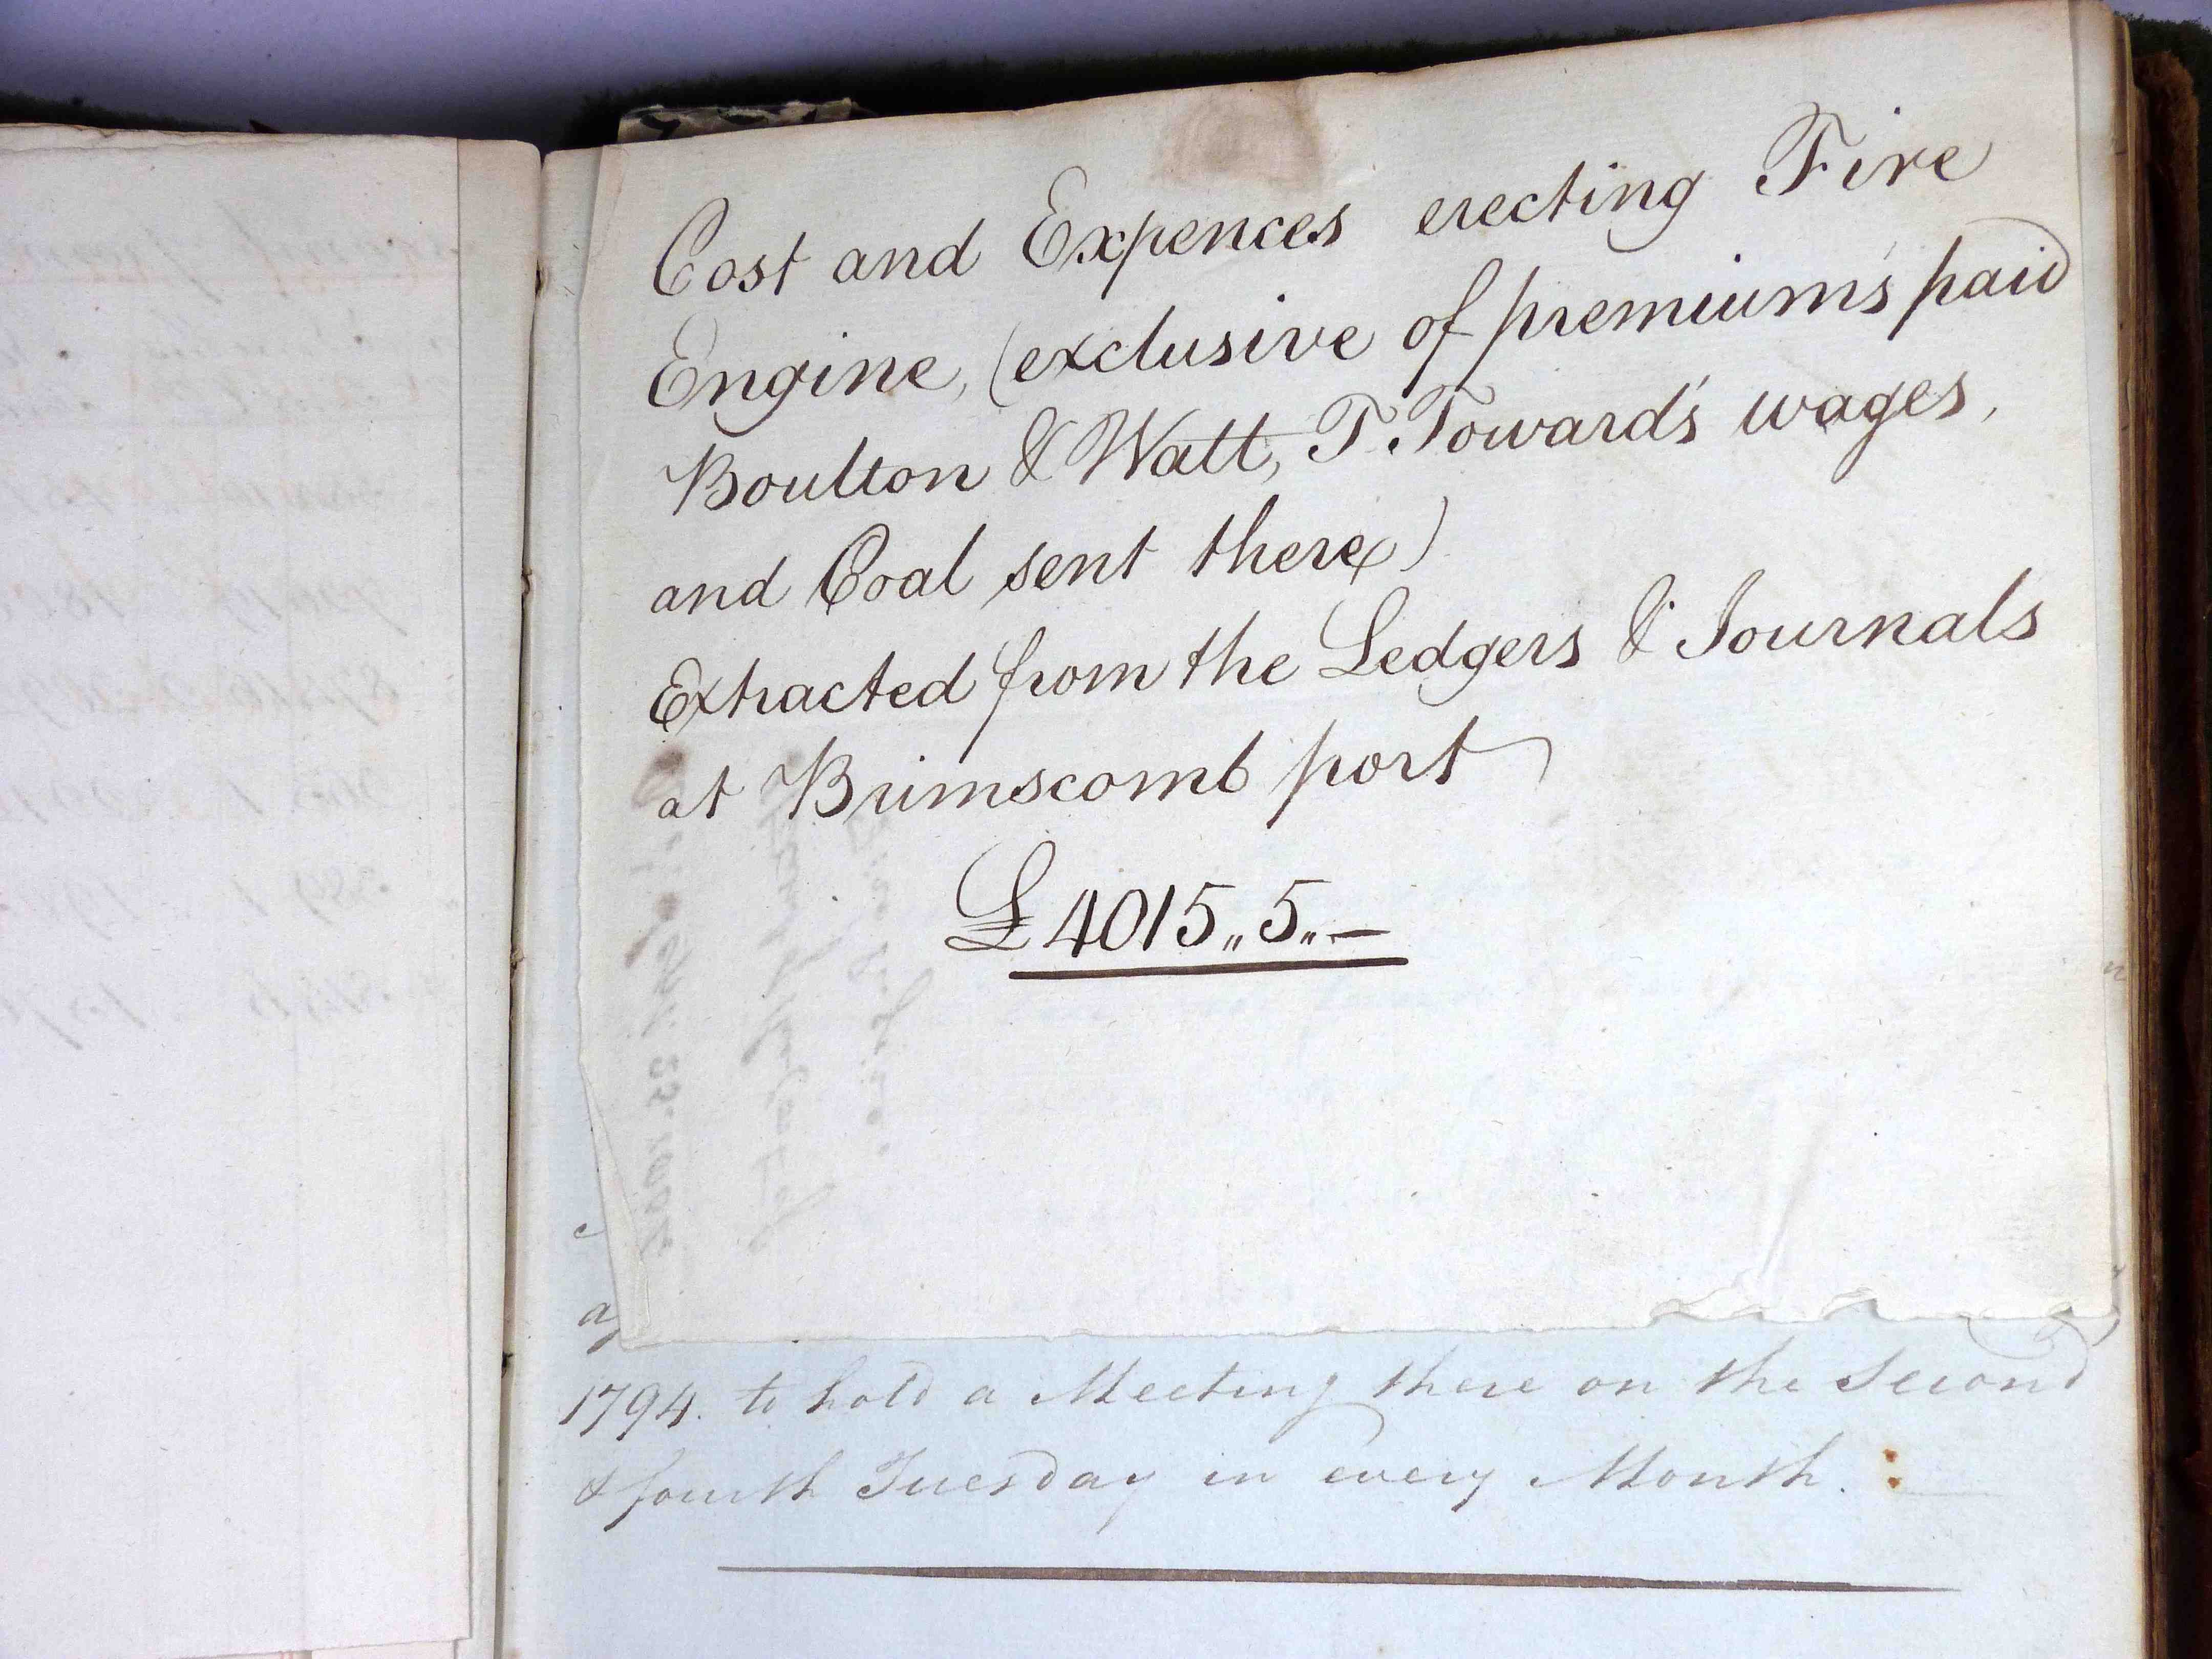 Cost and Expences erecting Fire
Engine, (exclusive of premiums paid
Boulton & Watt, T. Toward's wages,
and Coal sent there)
Extracted from the Ledgers & Journals
at Brimscomb port
£4015,,5,,—
1794. to hold a Meeting there on the Second
& fourth Tuesday in every Month.